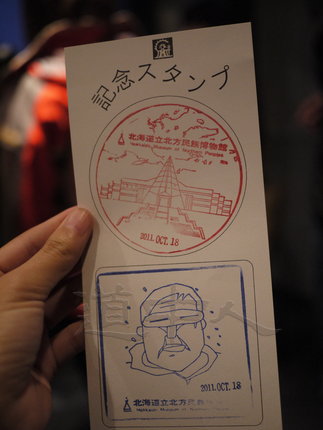 記念スタンプ
北海道立北方民族博物館
Hokkaido Museum of Northern Peoples
2011.OCT.18
2011.OCT.18
北海道立北方民族
Hokkaido Museum of Northern Peoples